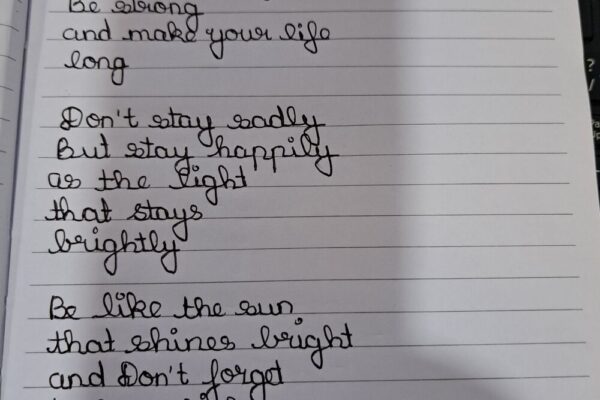 Be strong
and make your life
long
Don't stay sadly
But stay happily
as the light
that stays
brightly
Be like the sun
that shines bright
and Don't forget